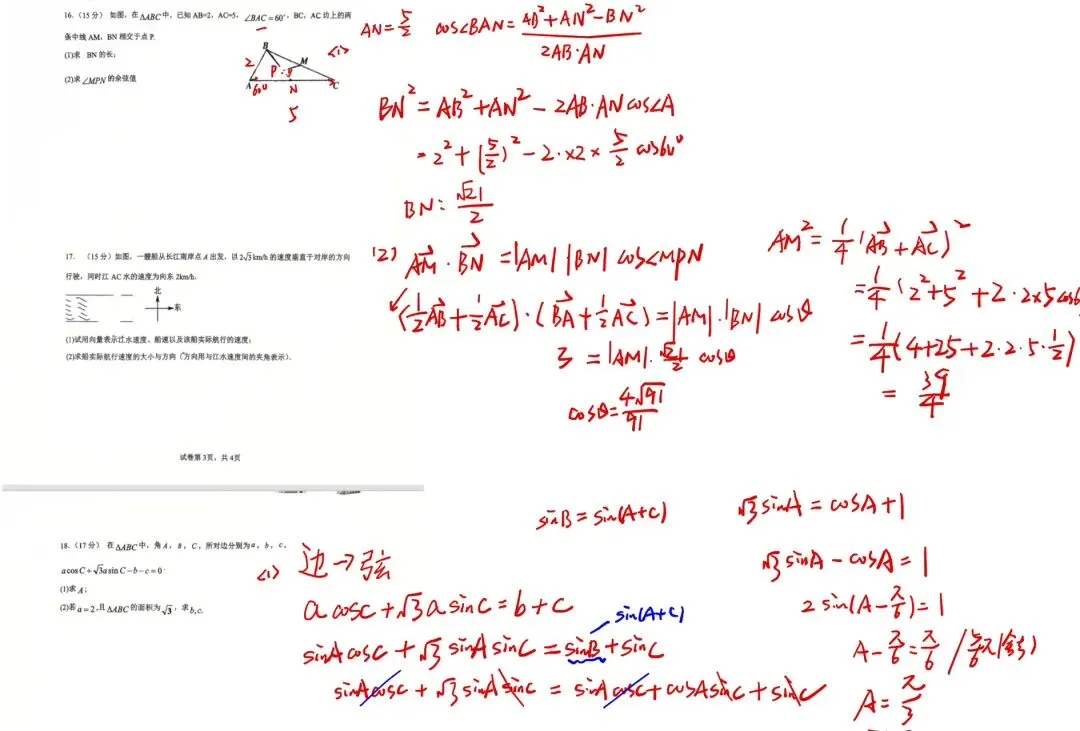 16.（15 分） 如图，在 △ABC 中，已知 AB=2，AC=5，∠BAC = 60°，BC，AC 边上的两
条中线 AM，BN 相交于点 P.
(1)求 BN 的长；
(2)求 ∠MPN 的余弦值
B
M
2
P
A
60°
N
C
5
<1>
AN = 5/2 cos∠BAN = (AB²+AN²-BN²)/(2AB·AN)
BN² = AB²+AN² - 2AB·AN cos∠A
= 2² + (5/2)² - 2·×2× 5/2 cos60°
BN: √21/2
17. （15 分）如图，一艘船从长江南岸点 A 出发，以 2√3 km/h 的速度垂直于对岸的方向
行驶，同时江 AC 水的速度为向东 2km/h.
北
东
(1)试用向量表示江水速度、船速以及该船实际航行的速度；
(2)求船实际航行速度的大小与方向（方向用与江水速度间的夹角表示）.
(2) AM→·BN→ = |AM| |BN| cos<MPN
(1/2AB→+1/2AC→)·(BA→+1/2AC→) = |AM|·|BN| cosθ
3 = |AM|·√21/2 cosθ
cosθ = 4√91/91
AM² = 1/4(AB→+AC→)²
= 1/4(2²+5²+2·2×5cos6
= 1/4(4+25+2·2·5·1/2)
= 39/4
试卷第 3页，共 4页
18.（17 分） 在 △ABC 中，角 A，B，C，所对边分别为 a，b，c，
a cos C + √3a sin C − b − c = 0 .
(1)求 A；
(2)若 a = 2，且 △ABC 的面积为 √3，求 b,c.
<1> 边→弦
a cosC + √3 a sinC = b+c
sin(A+C)
sinA cosC + √3 sinA sinC = sinB + sinC
sinA cosC + √3 sinA sinC = sinA cosC + cosA sinC + sinC
sinB = sin(A+C)
√3 sinA = cosA + 1
√3 sinA − cosA = 1
2 sin(A − π/6) = 1
A − π/6 = π/6 / 5/6π(舍)
A = π/3